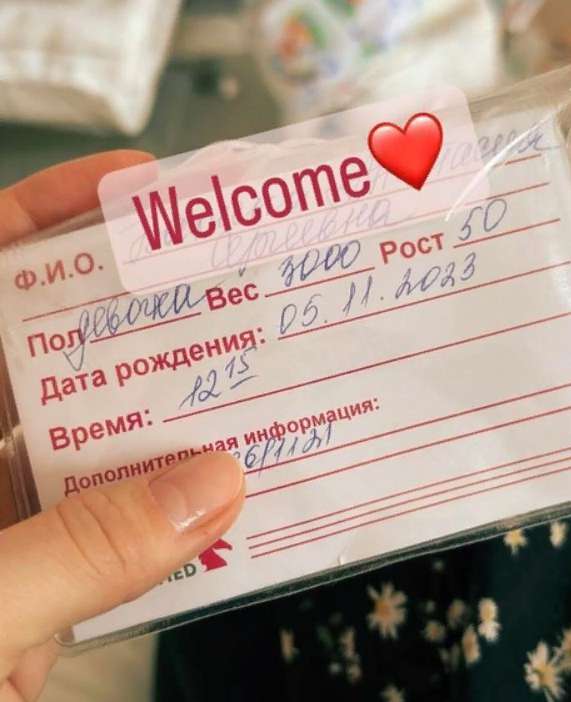 Welcome❤️
Ф.И.О.
Сергеевна
Пол девочка Вес 3000 Рост 50
Дата рождения: 05.11.2023
Время: 12 15
Дополнительная информация: